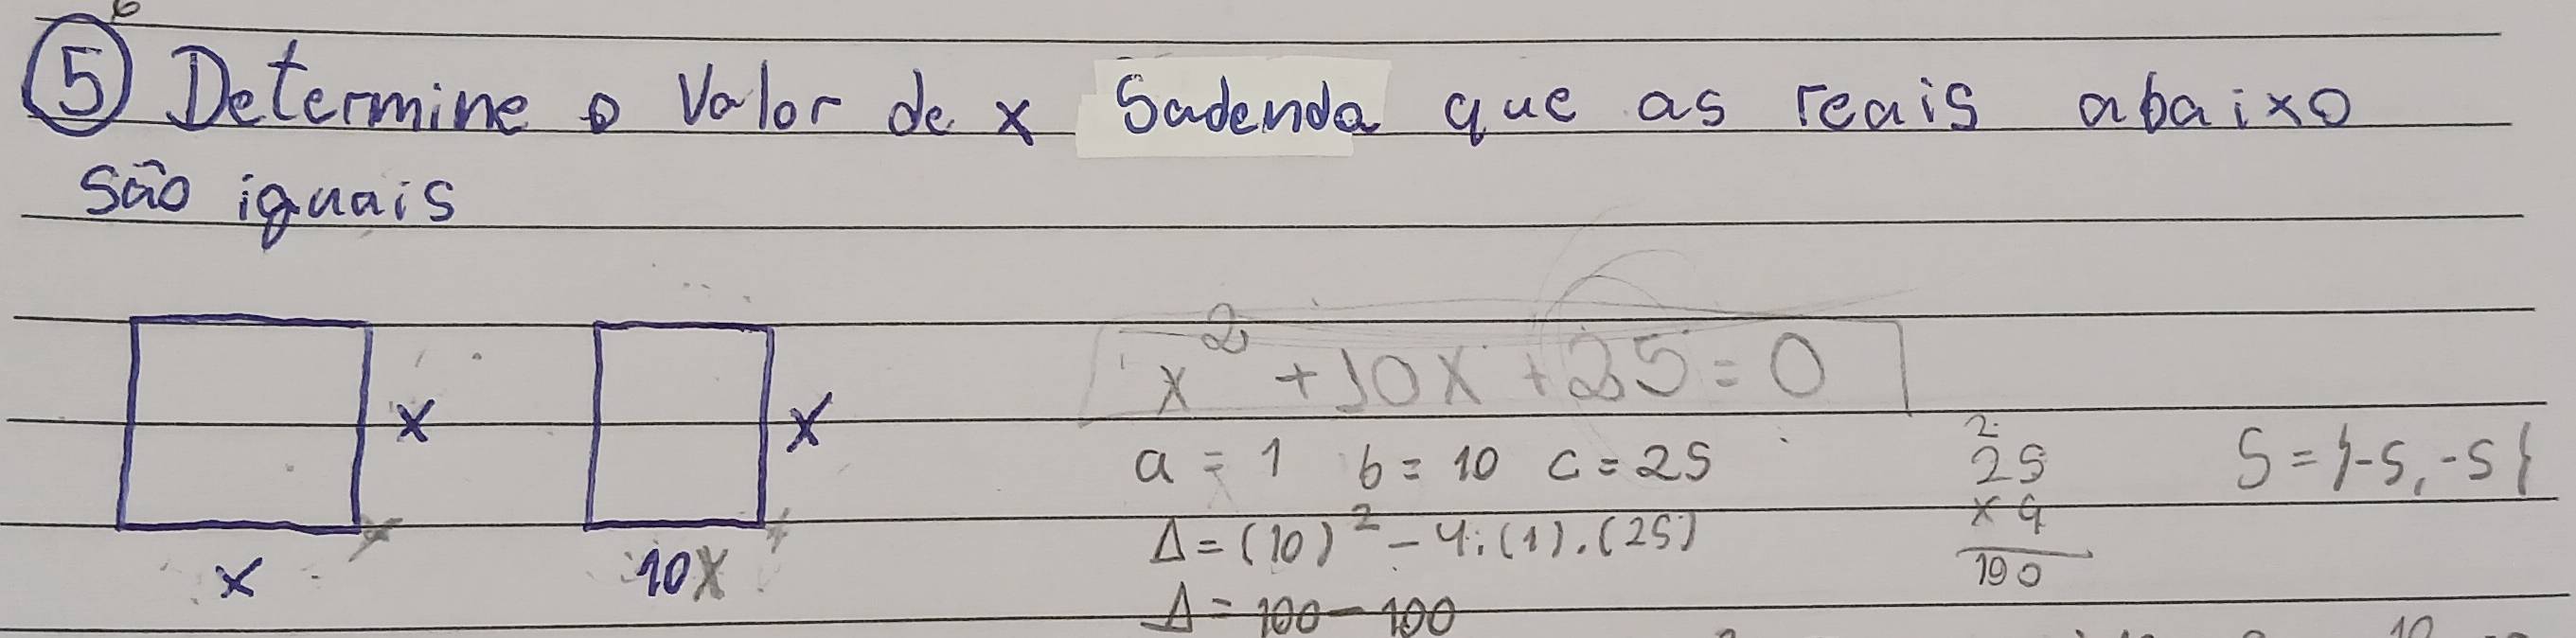 5 Determine o Valor de x Sadenda que as reais abaixo
são iguais
x x
x 10X
x² + 10x + 25 = 0
a = 1 b = 10 c = 25
Δ = (10)² - 4.(1).(25)
Δ = 100 - 100
2
25
x 4
100
S = {-5, -5}
10